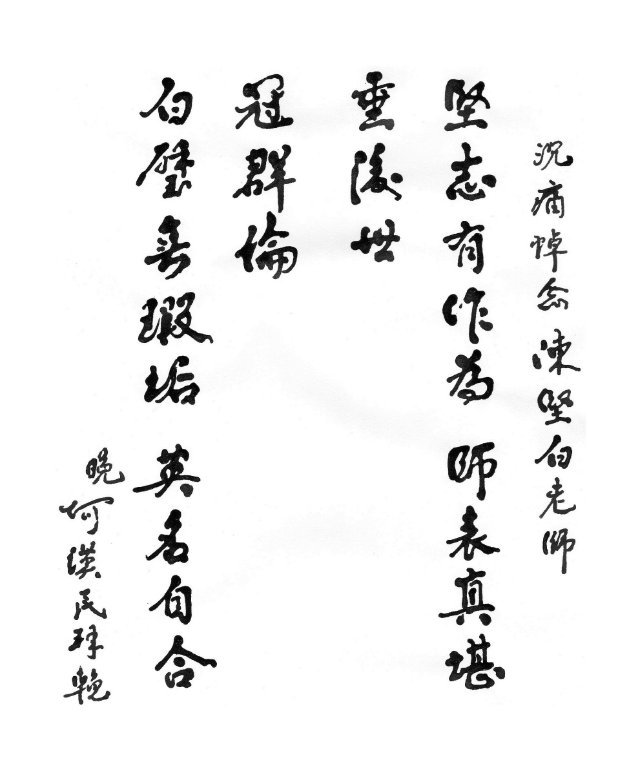 沉痛悼念陳堅白老師
堅志有作為 師表真堪
垂後世
白璧無瑕垢 英名自合
冠群倫
晚何漢民拜輓